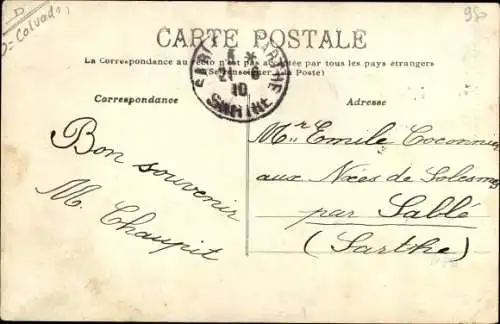 D
D= Calvados
98
CARTE POSTALE
La Correspondance au recto n'est pas acceptée par tous les pays étrangers
(Se renseigner à la Poste)
Correspondance
Adresse
21
10
SARTHE
Bon souvenir
M. Chaupit
Mr Emile Coconnier
aux Nxes de Solesmes
par Sablé
(Sarthe)